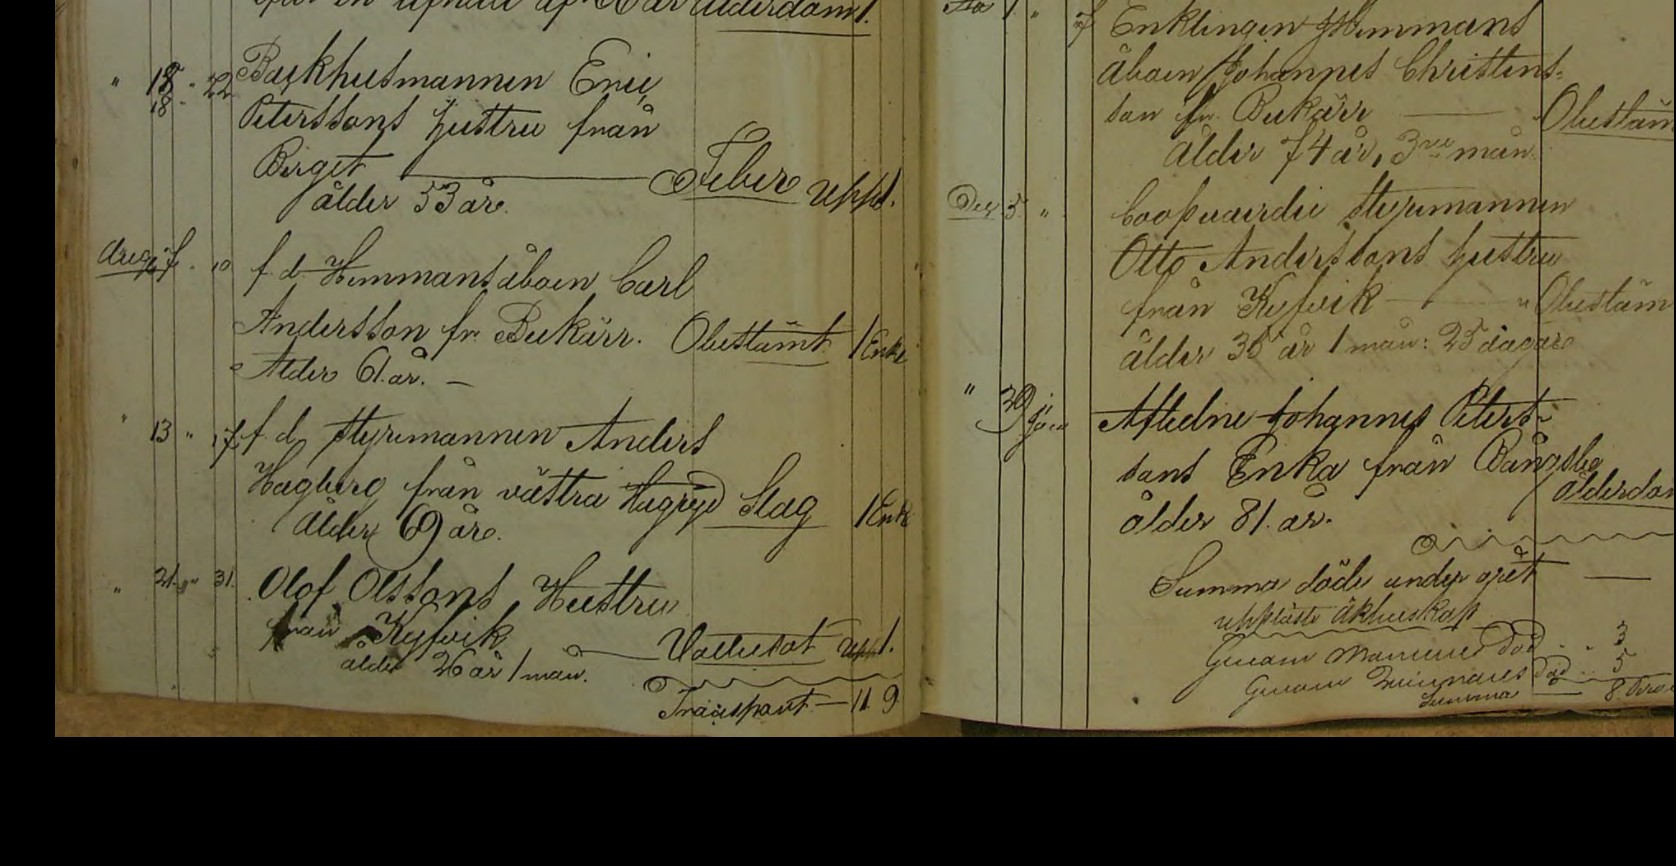 ålderdom 1.
" 18 " 22 Backhusmannen Eric
18 Peterssons hustru från
Birget — Feber uppl.
ålder 53 år.
10 f. d. Hemmansåboen Carl
Andersson fr. Buckärr. Obestämt 1 Enkl
Ålder 61 år. —
" 13 " 17 f. d. Styrmannen Anders
Hagberg från västra Hagryd Slag 1 Enk
ålder 69 år.
" 21 " 31. Olof Olssons Hustru
från Kyfvik — uppl.
ålder 26 år 1 mån.
Transport — 11 9
Enklingen Hemmans
åboen Johannes Christens-
son fr. Buckärr — Obestäm
ålder 74 år, 3 mån.
Dec 5 " Coopvaerdie Styrmannen
Otto Anderssons hustru
från Kyfvik — " Obestäm
ålder 35 år 1 mån: 25 dagar
" 30 Aflidne Johannes Peters-
sons Enka från Bångsbo
ålderdom
ålder 81. år.
Summa döde under året —
upplöste äktenskap
Genom Mannens död . . 3
Genom Qvinnans död . . 5
Summa — 8